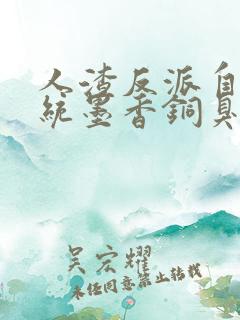 人渣反派自
統墨香銅臭
吴宏耀
未经同意禁止转载